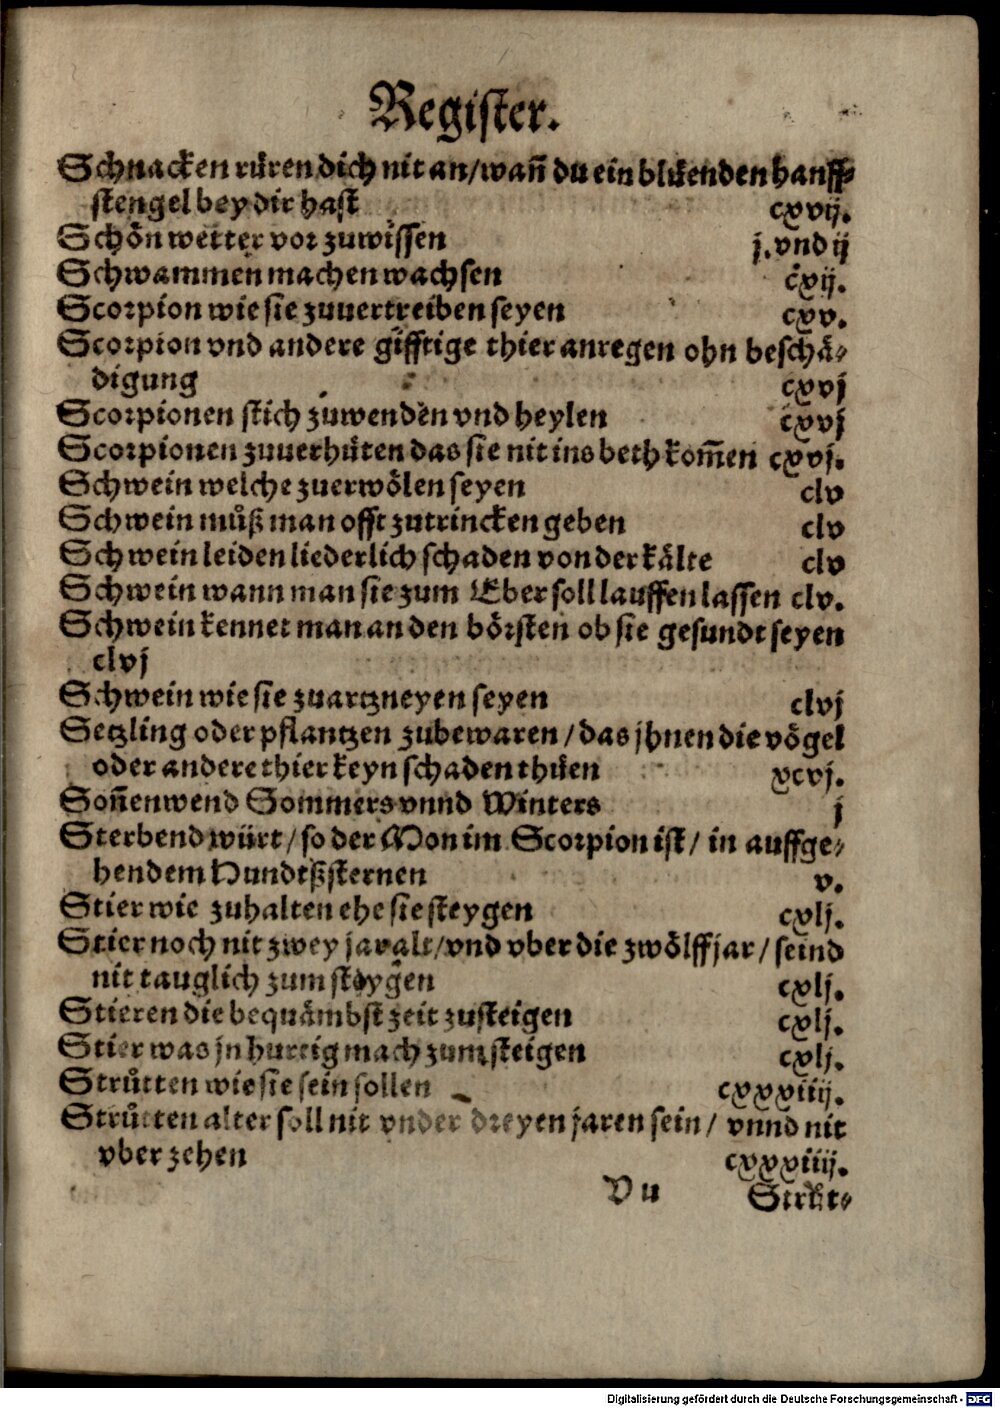 Register.
Schnacken rüren dich nit an/wañ du ein blüenden hanff⸗
stengel bey dir hast cxvij.
Schön wetter vor zuwissen j.vnd ij
Schwammen machen wachsen cxij.
Scorpion wie sie zuuertreiben seyen cxv.
Scorpion vnd andere gifftige thier anregen ohn beschä⸗
digung cxvj
Scorpionen stich zuwenden vnd heylen cxvj
Scorpionen zuuerhüten das sie nit ins beth kom̃en cxvj.
Schwein welche zuerwölen seyen clv
Schwein muͦß man offt zutrincken geben clv
Schwein leiden liederlich schaden von der kälte clv
Schwein wann man sie zum Eber soll lauffen lassen clv.
Schwein kennet man an den börsten ob sie gesundt seyen
clvj
Schwein wie sie zuartzneyen seyen clvj
Setzling oder pflantzen zubewaren/das jhnen die vögel
oder andere thier keyn schaden thüen xcvj.
Soñenwend Sommers vnnd Winters j
Sterbend würt/so der Mon im Scorpion ist/in auffge⸗
hendem Hundtßsternen v.
Stier wie zuhalten ehe sie steygen cxlj.
Stier noch nit zwey jar alt/vnd vber die zwölff jar/seind
nit tauglich zum steygen cxlj.
Stieren die bequämbst zeit zusteigen cxlj.
Stier was jn hurtig mach zum steigen cxlj.
Struͦtten wie sie sein sollen cxxxviiij.
Struͦtten alter soll nit vnder dreyen jaren sein/vnnd nit
vber zehen cxxxviiij.
Vu Strüt⸗
Digitalisierung gefördert durch die Deutsche Forschungsgemeinschaft - DFG